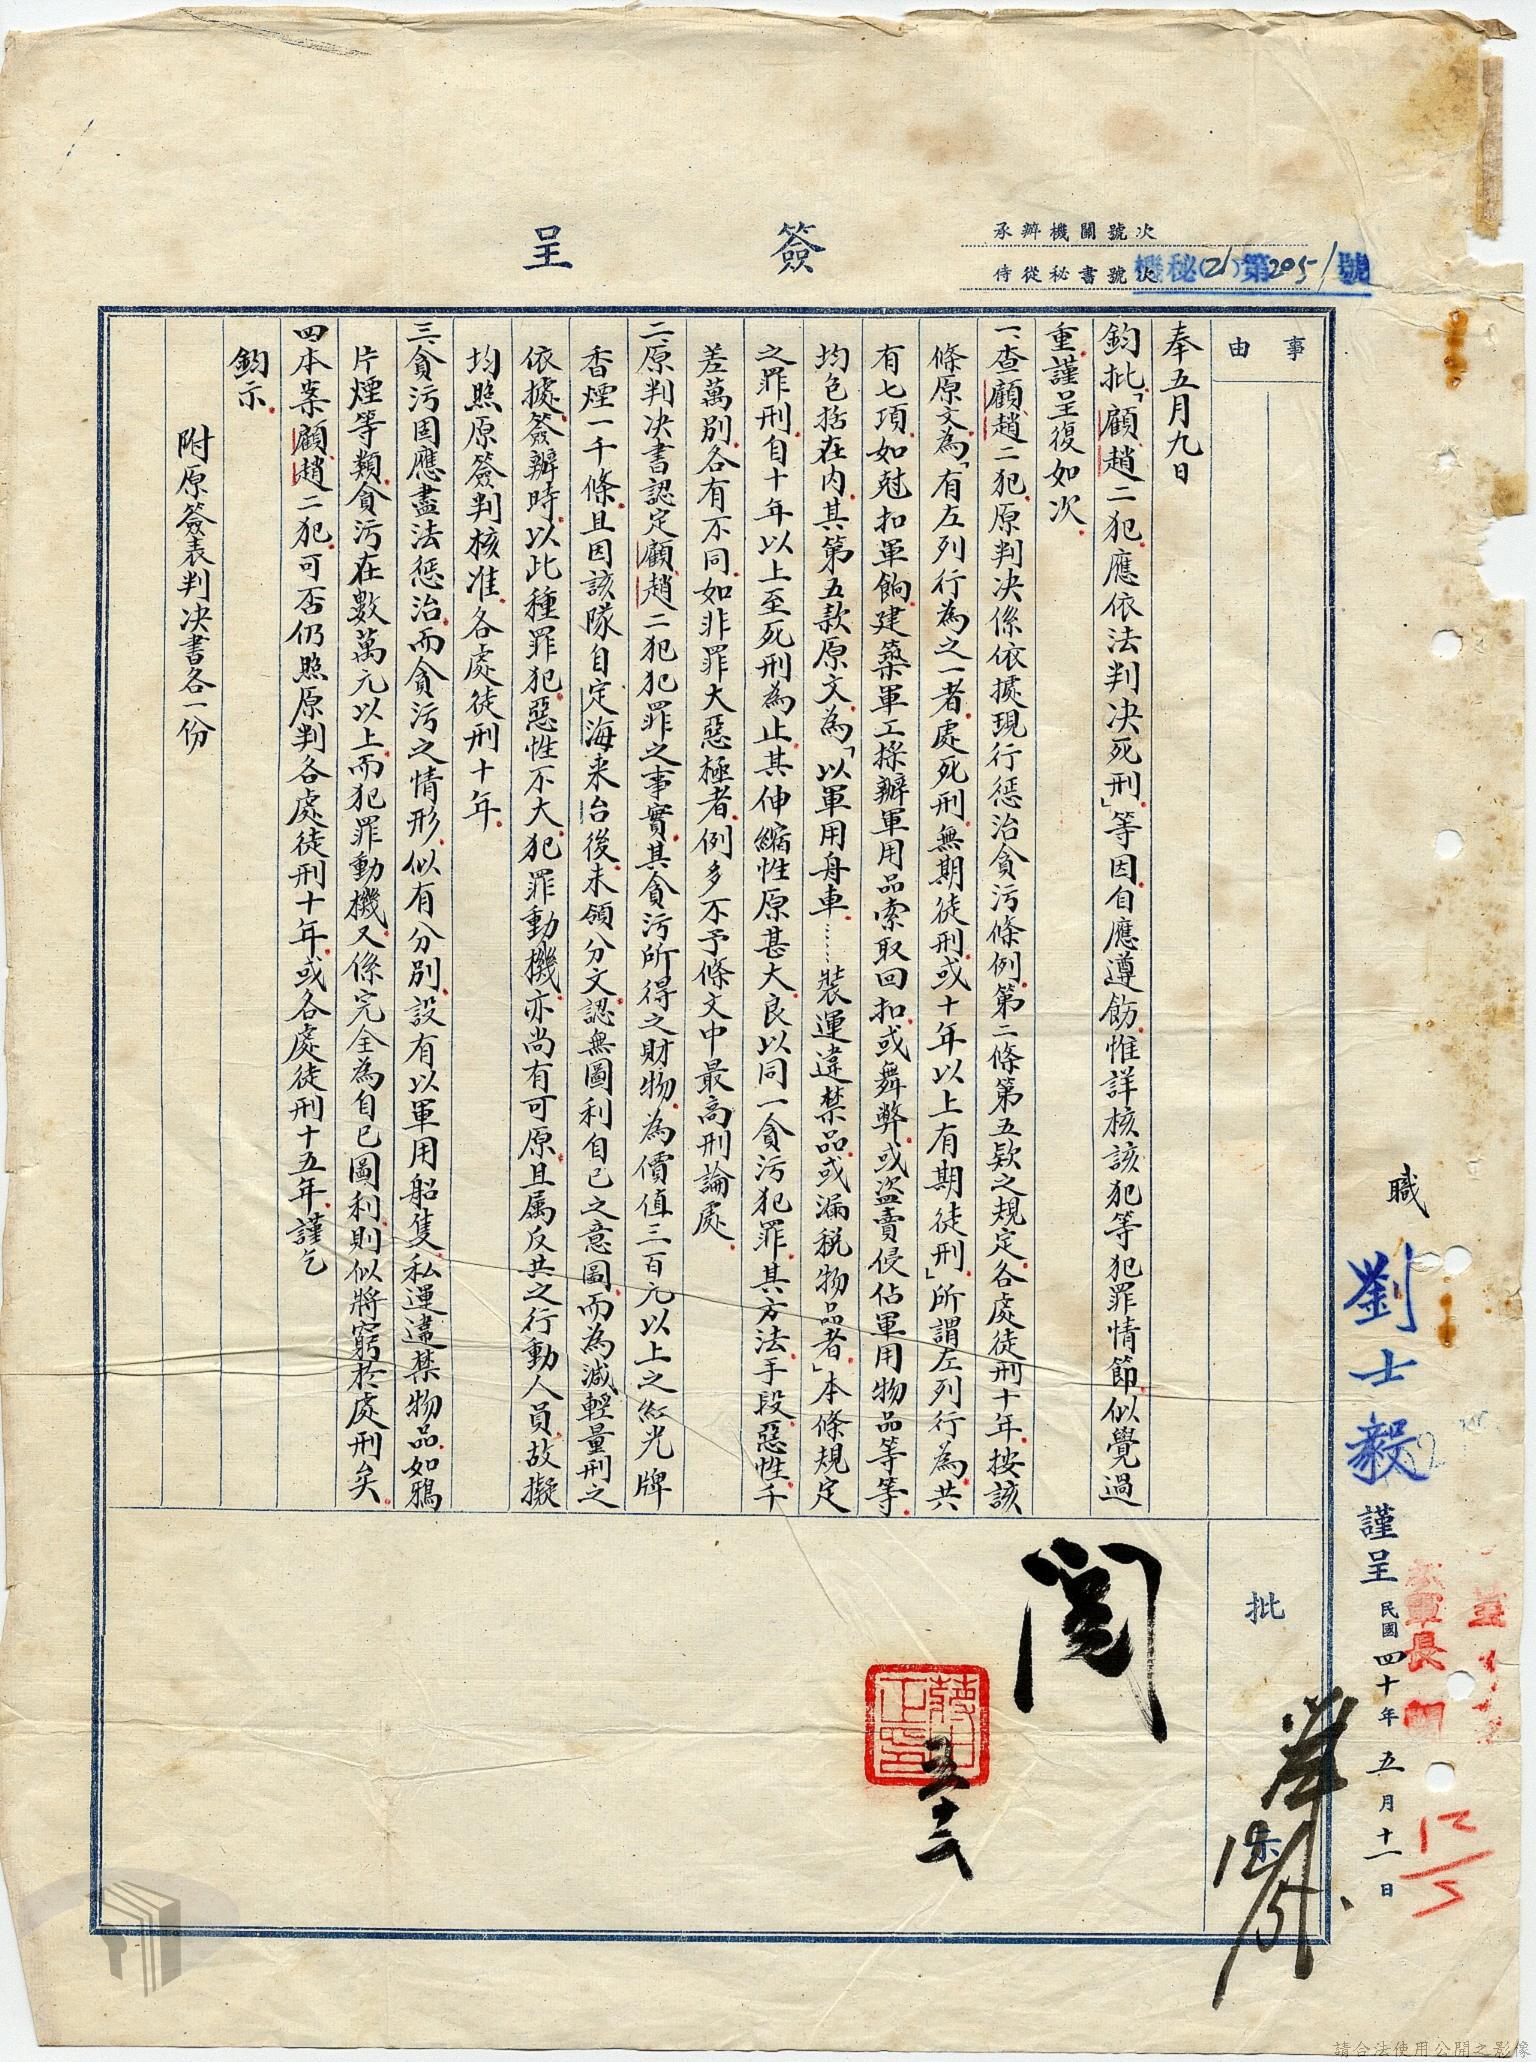 簽呈
承辦機關號次
侍從秘書號次
機秘(21)第2051號
事由
奉五月九日
鈞批「顧趙二犯應依法判決死刑」等因自應遵飭惟詳核該犯等犯罪情節似覺過
重謹呈復如次
一、查顧趙二犯原判決係依據現行懲治貪污條例第二條第五款之規定各處徒刑十年按該
條原文為「有左列行為之一者處死刑無期徒刑或十年以上有期徒刑」所謂左列行為共
有七項如尅扣軍餉建築軍工採辦軍用品索取回扣或舞弊或盜賣侵佔軍用物品等等
均包括在內其第五款原文為「以軍用舟車……裝運違禁品或漏稅物品者」本條規定
之罪刑自十年以上至死刑為止其伸縮性原甚大良以同一貪污犯罪其方法手段惡性千
差萬別各有不同如非罪大惡極者例多不予條文中最高刑論處
二、原判決書認定顧趙二犯犯罪之事實其貪污所得之財物為價值三百元以上之紅光牌
香煙一千條且因該隊自定海來台後未領分文認無圖利自己之意圖而為減輕量刑之
依據簽辦時以此種罪犯惡性不大犯罪動機亦尚有可原且屬反共之行動人員故擬
均照原簽判核准各處徒刑十年
三、貪污固應盡法懲治而貪污之情形似有分別設有以軍用船隻私運違禁物品如鴉
片煙等類貪污在數萬元以上而犯罪動機又係完全為自己圖利則似將窮於處刑矣
四、本案顧趙二犯可否仍照原判各處徒刑十年或各處徒刑十五年謹乞
鈞示
附原簽表判決書各一份
職劉士毅謹呈民國四十年五月十一日
批示
閱
蔣中正印
五十二
12/5
12/5
請合法使用公開之影像